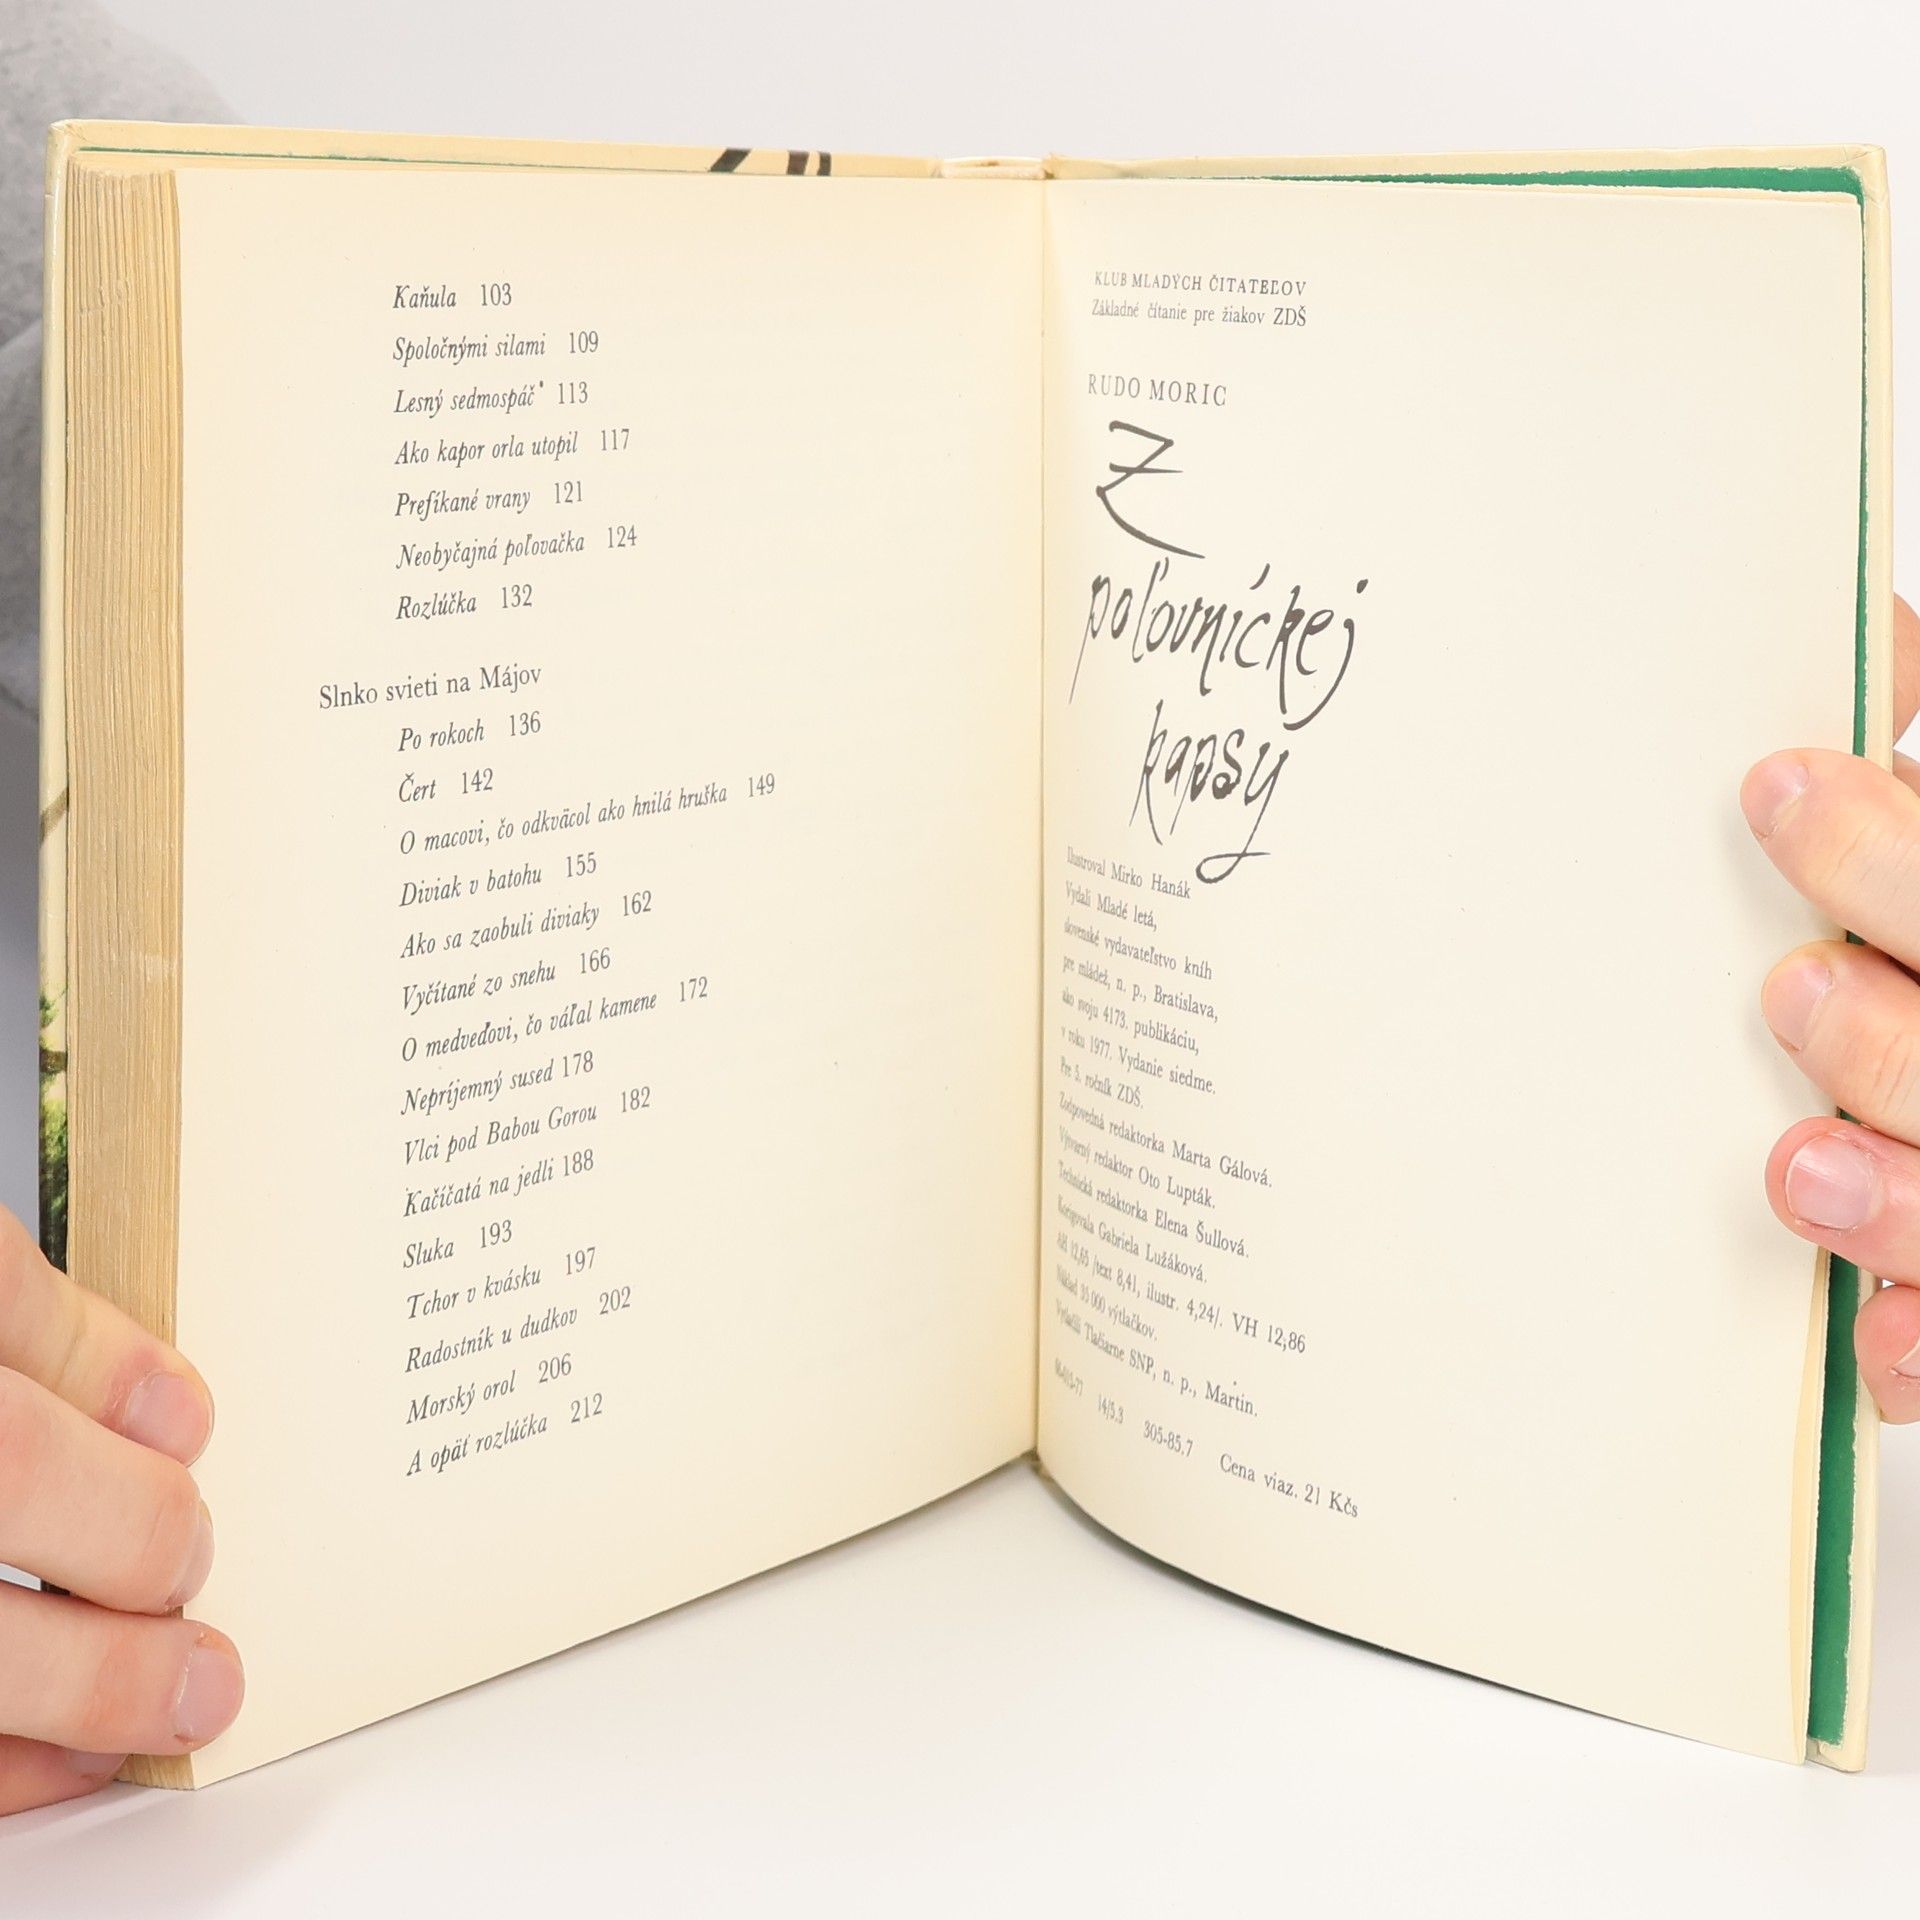 Kaňula 103
Spoločnými silami 109
Lesný sedmospáč 113
Ako kapor orla utopil 117
Prefíkané vrany 121
Neobyčajná poľovačka 124
Rozlúčka 132
Slnko svieti na Májov
Po rokoch 136
Čert 142
O macovi, čo odkväcol ako hnilá hruška 149
Diviak v batohu 155
Ako sa zaobuli diviaky 162
Vyčítané zo snehu 166
O medveďovi, čo váľal kamene 172
Nepríjemný sused 178
Vlci pod Babou Gorou 182
Kačíčatá na jedli 188
Sluka 193
Tchor v kvásku 197
Radostník u dudkov 202
Morský orol 206
A opäť rozlúčka 212
KLUB MLADÝCH ČITATEĽOV
Základné čítanie pre žiakov ZDŠ
RUDO MORIC
Z
poľovníckej
kapsy
Ilustroval Mirko Hanák
Vydali Mladé letá,
slovenské vydavateľstvo kníh
pre mládež, n. p., Bratislava,
ako svoju 4173. publikáciu,
v roku 1977. Vydanie siedme.
Pre 5. ročník ZDŠ.
Zodpovedná redaktorka Marta Gálová.
Výtvarný redaktor Oto Lupták.
Technická redaktorka Elena Šullová.
Korigovala Gabriela Lužáková.
AH 12,65 /text 8,41, ilustr. 4,24/. VH 12,86
Náklad 35 000 výtlačkov.
Vytlačili Tlačiarne SNP, n. p., Martin.
66-013-77 14/5.3 305-85.7 Cena viaz. 21 Kčs